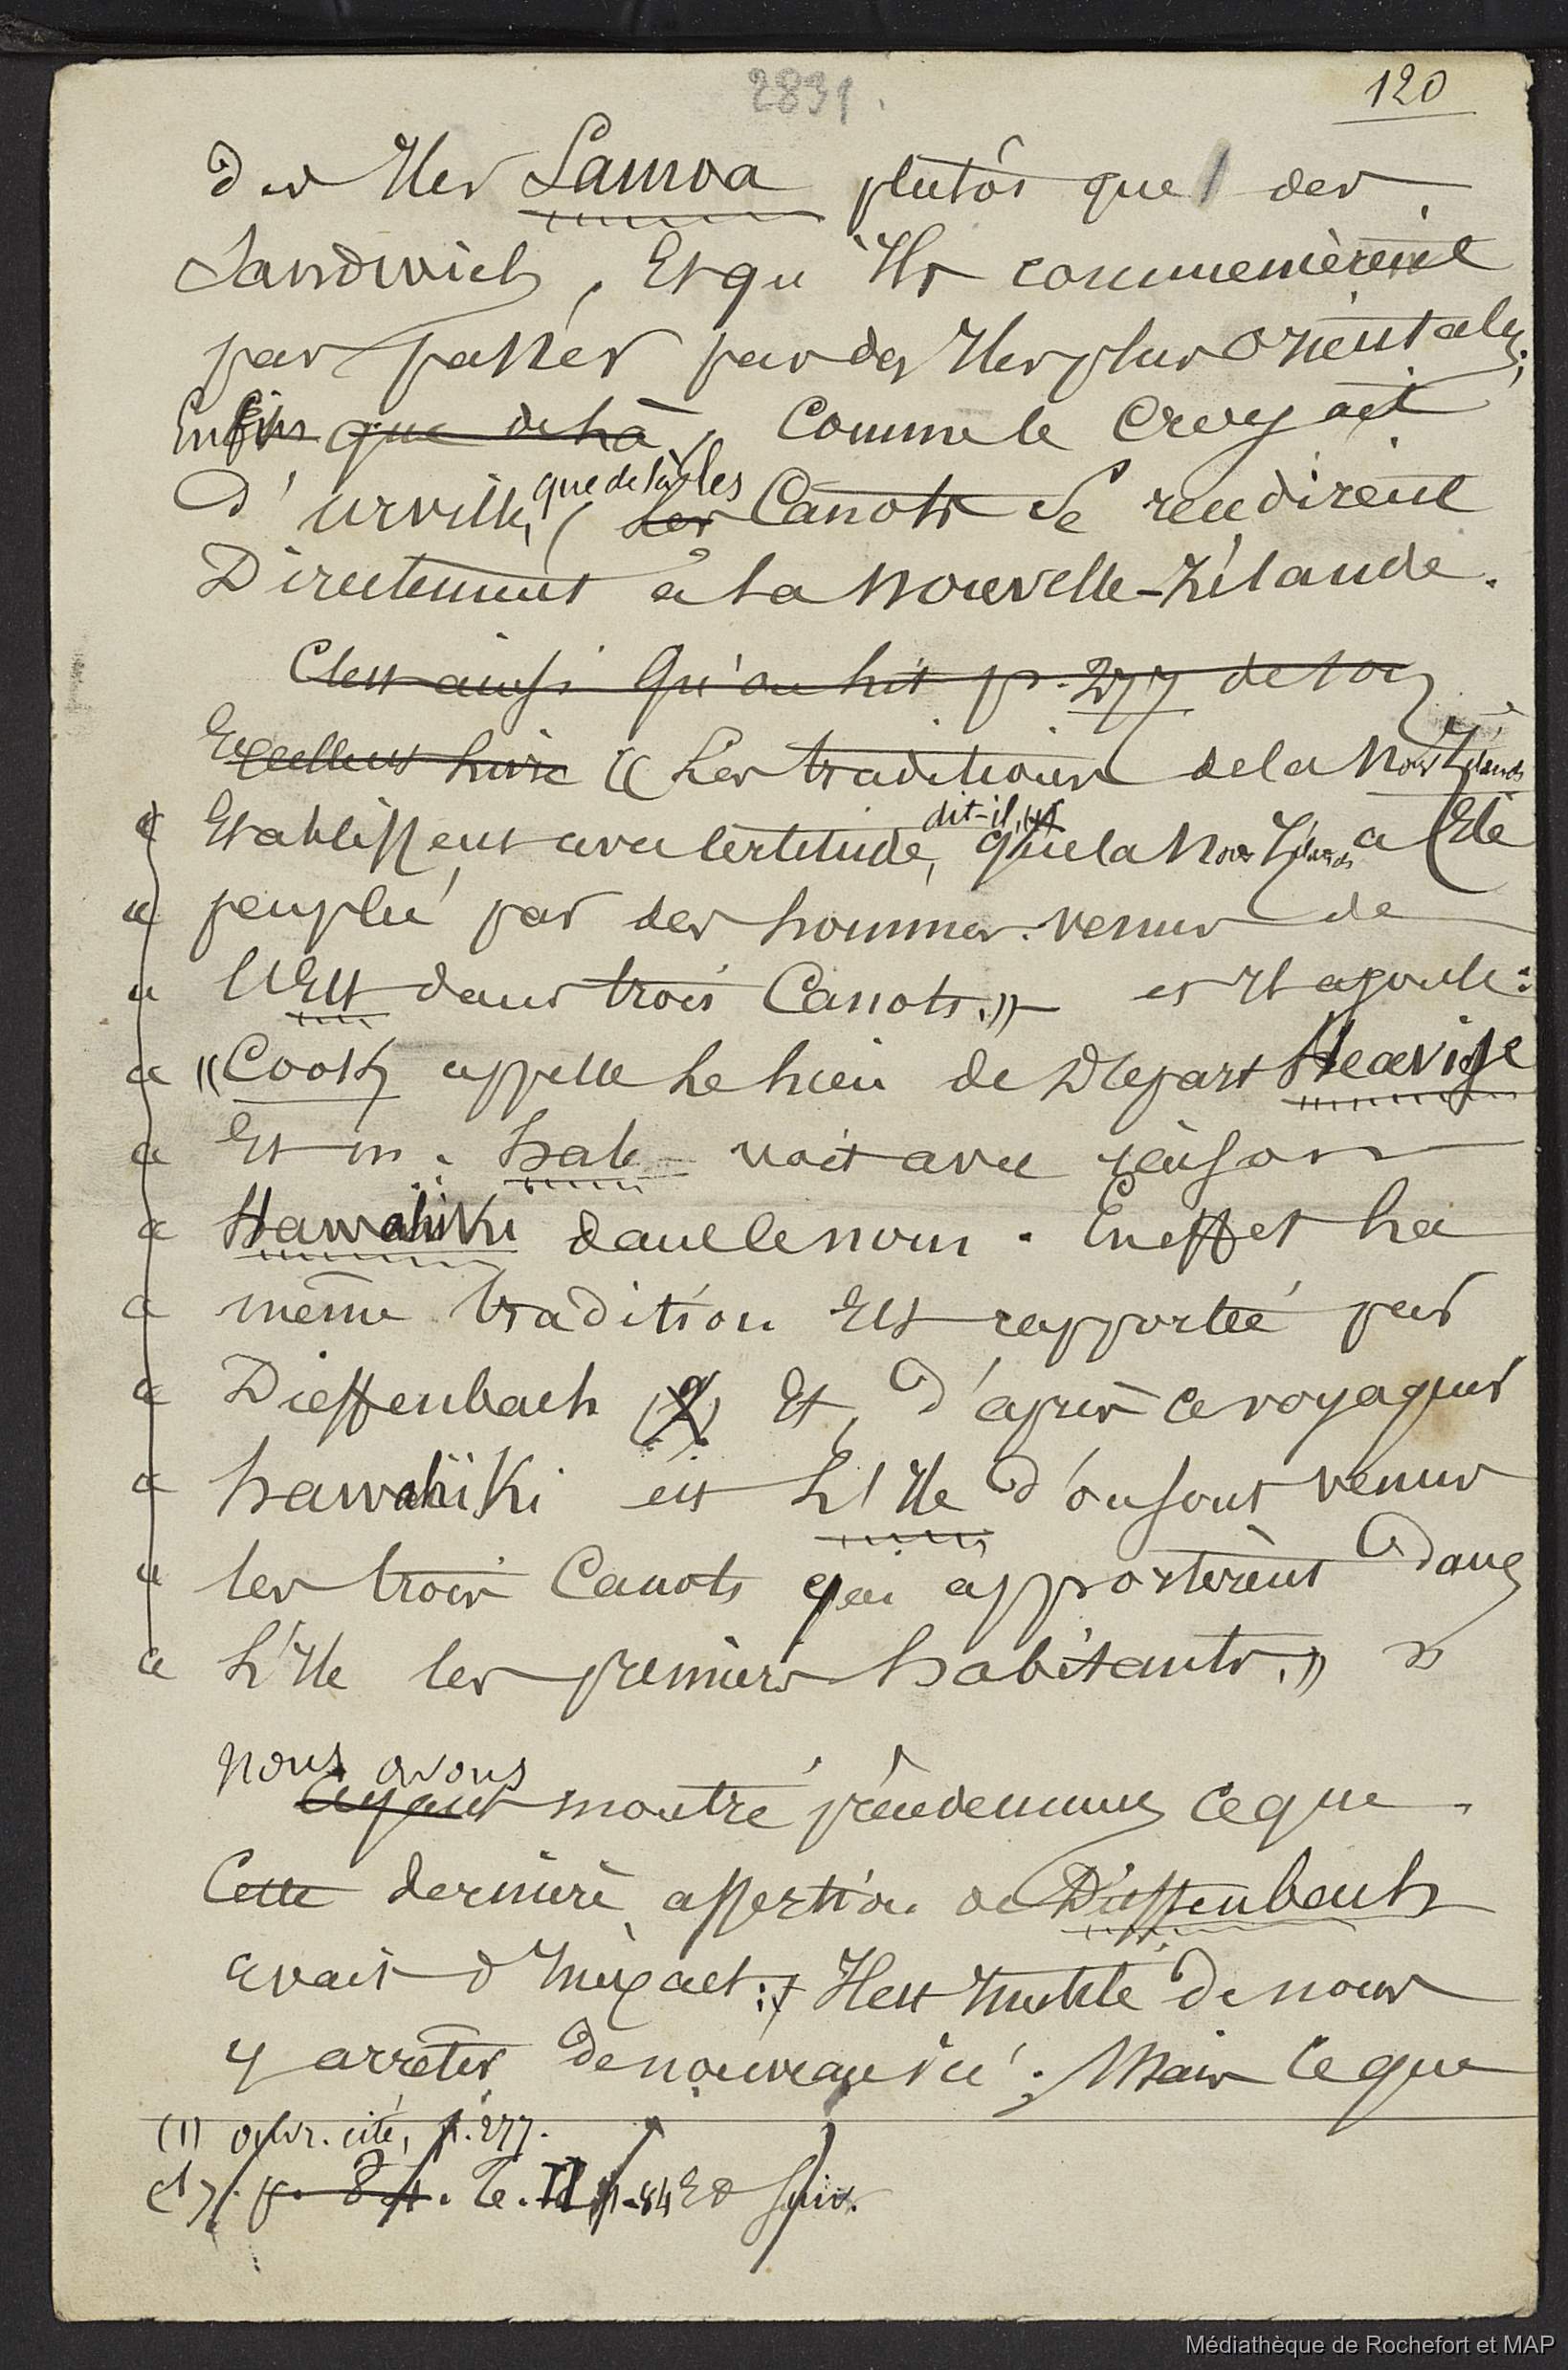 2831.
120
des Iles Samoa plutôt que des
Sandwich, Et qu'Ils commencèrent
par passer par des Iles plus orientales;
Enfin que de là, Comme le Croyait
d'Urville, que de là les Les Canots se rendirent
Directement à la Nouvelle-Zélande.
C'est ainsi qu'on lit p. 277 de son
Excellent livre « Les traditions de la Nouv. Zélande
« Etablissent avec Certitude, dit-il, (1) que la Nouv Zélande a Eté
« peuplée par des hommes venus de
« l'Est dans trois Canots. » et Il ajoute:
« « Cook appelle le lieu de Départ Heawije
« Et m. hale voit avec raison
« Hawahiki dans le nom. En effet la
« même tradition Est rapportée par
« Dieffenbach (2) Et, D'après ce voyageur
« hawahiki est L'Ile d'où sont venus
« les trois Canots qui apportèrent dans
« L'Ile les premiers habitants. » »
Nous avons
Ayant montré précédemment ce que
Cette dernière assertion de Dieffenbach
avait d'Inexact: Il est Inutile de nous
y arrêter de nouveau ici; Mais ce que
(1) ouvr. cité, p. 277.
p. 84. T. II p. 84 Et suiv.
Médiathèque de Rochefort et MAP